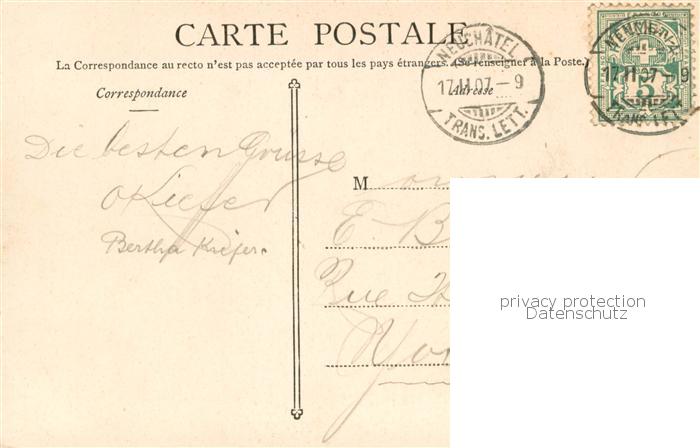 CARTE POSTALE
La Correspondance au recto n'est pas acceptée par tous les pays étrangers. (Se renseigner à la Poste.)
Correspondance
Adresse
NEUCHÂTEL
17.II.07.-9
TRANS. LETT.
17.II.07.-9
5
Die besten Grüsse
O Kiefer
Bertha Kiefer.
M
E. B
Rue
privacy protection
Datenschutz